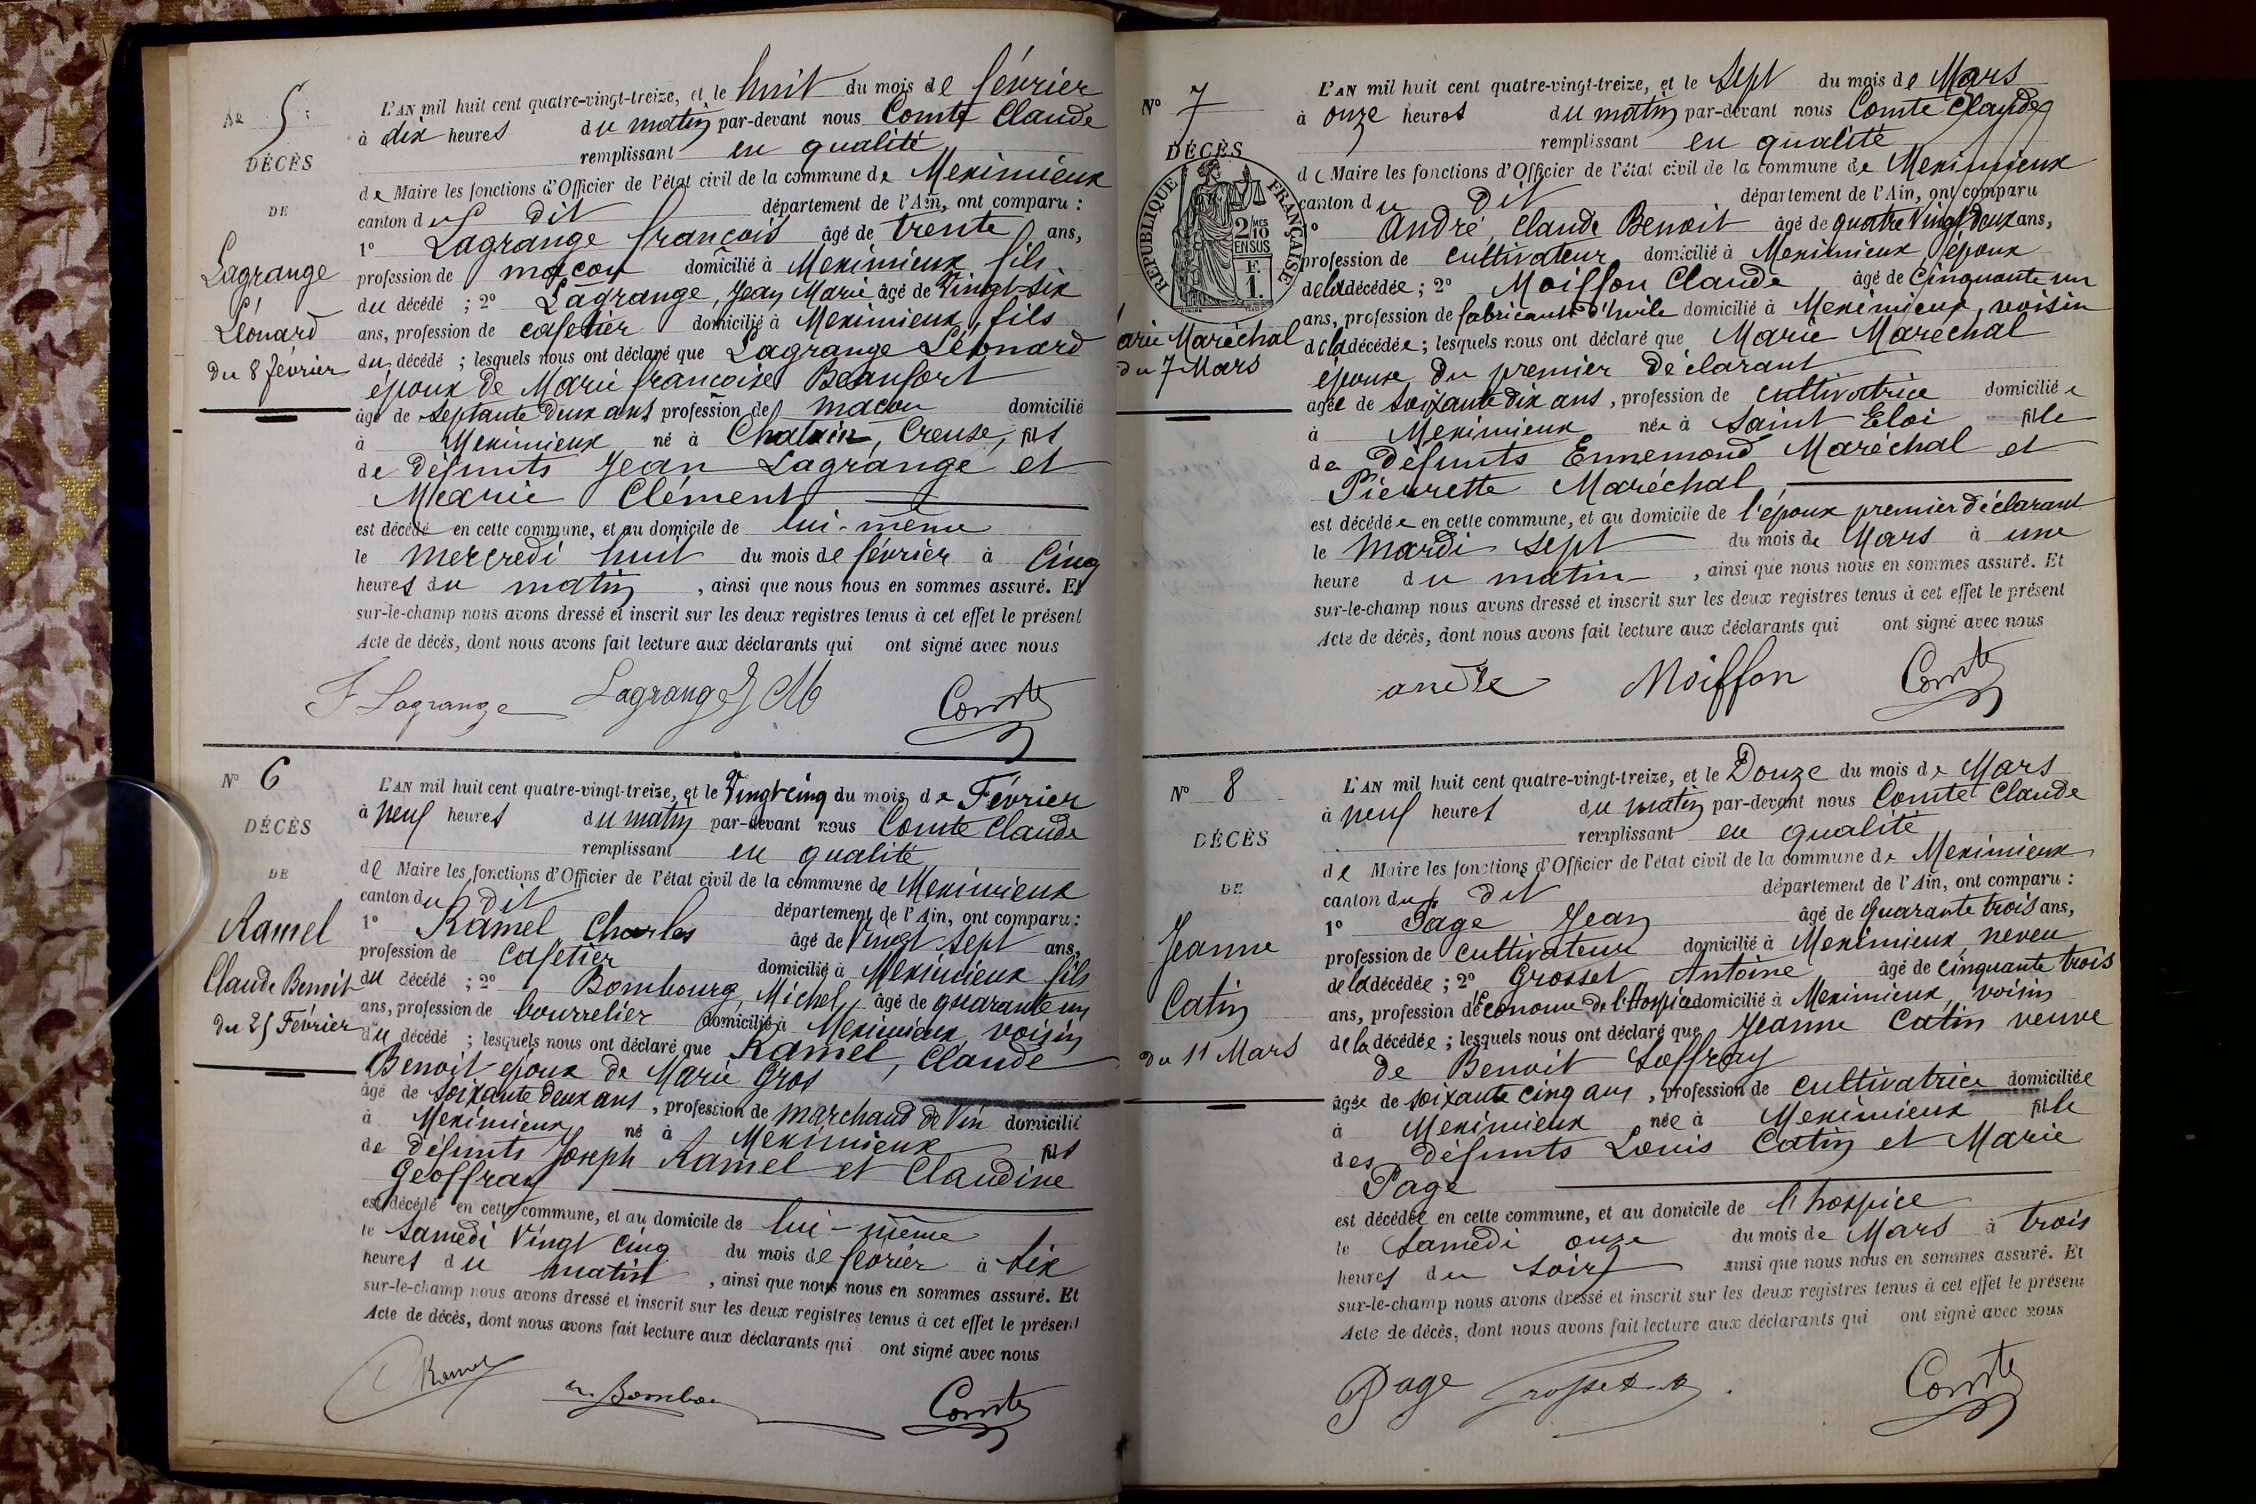 No 5
DÉCÈS
DE
Lagrange
Léonard
du 8 février
L'AN mil huit cent quatre-vingt-treize, et le huit du mois de février
à dix heures du matin par-devant nous Comte Claude
remplissant en qualité
de Maire les fonctions d'Officier de l'état civil de la commune de Meximieux
canton du dit département de l'Ain, ont comparu :
1o Lagrange françois âgé de trente ans,
profession de maçon domicilié à Meximieux fils
du décédé ; 2o Lagrange, Jean Marie âgé de Vingt-six
ans, profession de cafetier domicilié à Meximieux, fils
du décédé ; lesquels nous ont déclaré que Lagrange Léonard
époux de Marie françoise Beaufort
âgé de septante deux ans profession de maçon domicilié
à Meximieux né à Chatain, Creuse, fils
de défunts Jean Lagrange et
Marie Clément
est décédé en cette commune, et au domicile de lui-même
le mercredi huit du mois de février à Cinq
heures du matin, ainsi que nous nous en sommes assuré. Et
sur-le-champ nous avons dressé et inscrit sur les deux registres tenus à cet effet le présent
Acte de décès, dont nous avons fait lecture aux déclarants qui ont signé avec nous
F Lagrange Lagrange J M Comte
No 6
DÉCÈS
DE
Ramel
Claude Benoit
du 25 Février
L'AN mil huit cent quatre-vingt-treize, et le Vingt cinq du mois de Février
à neuf heures du matin par-devant nous Comte Claude
remplissant en qualité
de Maire les fonctions d'Officier de l'état civil de la commune de Meximieux
canton du dit département de l'Ain, ont comparu :
1o Ramel Charles âgé de Vingt sept ans,
profession de cafetier domicilié à Meximieux fils
du décédé ; 2o Bombourg, Michel, âgé de quarante un
ans, profession de bourrelier domicilié à Meximieux, voisin
du décédé ; lesquels nous ont déclaré que Ramel, Claude
Benoit époux de Marie Gros
âgé de soixante deux ans, profession de marchand de Vin domicilié
à Meximieux né à Meximieux fils
de défunts Joseph Ramel et Claudine
Geoffray
est décédé en cette commune, et au domicile de lui-même
le samedi Vingt cinq du mois de février à six
heures du matin, ainsi que nous nous en sommes assuré. Et
sur-le-champ nous avons dressé et inscrit sur les deux registres tenus à cet effet le présent
Acte de décès, dont nous avons fait lecture aux déclarants qui ont signé avec nous
C Ramel Bombou Comte
No 7
DÉCÈS
RÉPUBLIQUE FRANÇAISE
2 MES
10
EN SUS
F.
1.
arie Maréchal
du 7 Mars
L'AN mil huit cent quatre-vingt-treize, et le Sept du mois de Mars
à onze heures du matin par-devant nous Comte Claude
remplissant en qualité
de Maire les fonctions d'Officier de l'état civil de la commune de Meximieux
canton du dit département de l'Ain, ont comparu
1o André, Claude Benoit âgé de quatre Vingt deux ans,
profession de cultivateur domicilié à Meximieux époux
de la décédée ; 2o Moiffon Claude âgé de Cinquante un
ans, profession de fabricant d'huile domicilié à Meximieux, voisin
de la décédée ; lesquels nous ont déclaré que Marie Maréchal
épouse du premier déclarant
âgée de soixante dix ans, profession de cultivatrice domiciliée
à Meximieux née à Saint Eloi fille
de défunts Ennemond Maréchal et
Pierrette Maréchal
est décédée en cette commune, et au domicile de l'époux premier déclarant
le Mardi sept du mois de Mars à une
heure du matin, ainsi que nous nous en sommes assuré. Et
sur-le-champ nous avons dressé et inscrit sur les deux registres tenus à cet effet le présent
Acte de décès, dont nous avons fait lecture aux déclarants qui ont signé avec nous
andre Moiffon Comte
No 8
DÉCÈS
DE
Jeanne
Catin
du 11 Mars
L'AN mil huit cent quatre-vingt-treize, et le Douze du mois de Mars
à neuf heures du matin par-devant nous Comte Claude
remplissant en qualité
de Maire les fonctions d'Officier de l'état civil de la commune de Meximieux
canton du dit département de l'Ain, ont comparu :
1o Page Jean âgé de Quarante trois ans,
profession de cultivateur domicilié à Meximieux, neveu
de la décédée ; 2o Grosset Antoine âgé de cinquante trois
ans, profession d'économe de l'Hospice domicilié à Meximieux, voisin
de la décédée ; lesquels nous ont déclaré que Jeanne Catin veuve
de Benoit Soffray
âgée de soixante cinq ans, profession de cultivatrice domiciliée
à Meximieux née à Meximieux fille
des défunts Louis Catin et Marie
Page
est décédée en cette commune, et au domicile de l'hospice
le Samedi onze du mois de Mars à trois
heures du soir ainsi que nous nous en sommes assuré. Et
sur-le-champ nous avons dressé et inscrit sur les deux registres tenus à cet effet le présent
Acte de décès, dont nous avons fait lecture aux déclarants qui ont signé avec nous
Page Grosset Comte